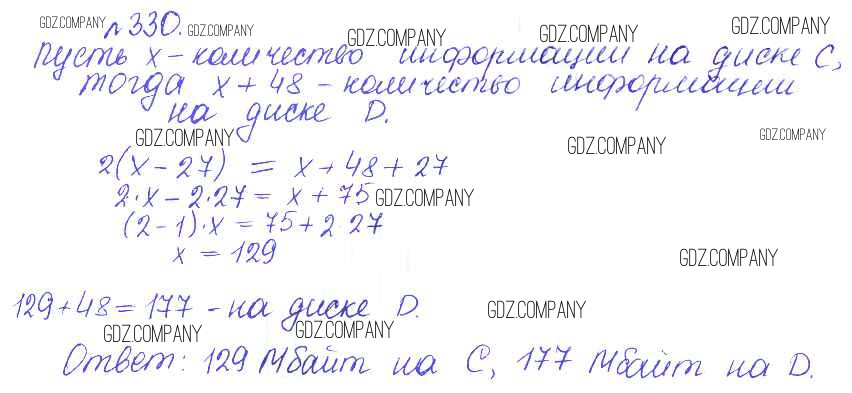 GDZ.COMPANY №330. GDZ.COMPANY GDZ.COMPANY GDZ.COMPANY GDZ.COMPANY
Пусть x – количество информации на диске C,
тогда x + 48 – количество информации
на диске D.
GDZ.COMPANY GDZ.COMPANY GDZ.COMPANY
2(x – 27) = x + 48 + 27
2·x – 2·27 = x + 75 GDZ.COMPANY
(2 – 1)·x = 75 + 2·27
x = 129
GDZ.COMPANY
129 + 48 = 177 – на диске D. GDZ.COMPANY
GDZ.COMPANY GDZ.COMPANY
Ответ: 129 Мбайт на C, 177 Мбайт на D.